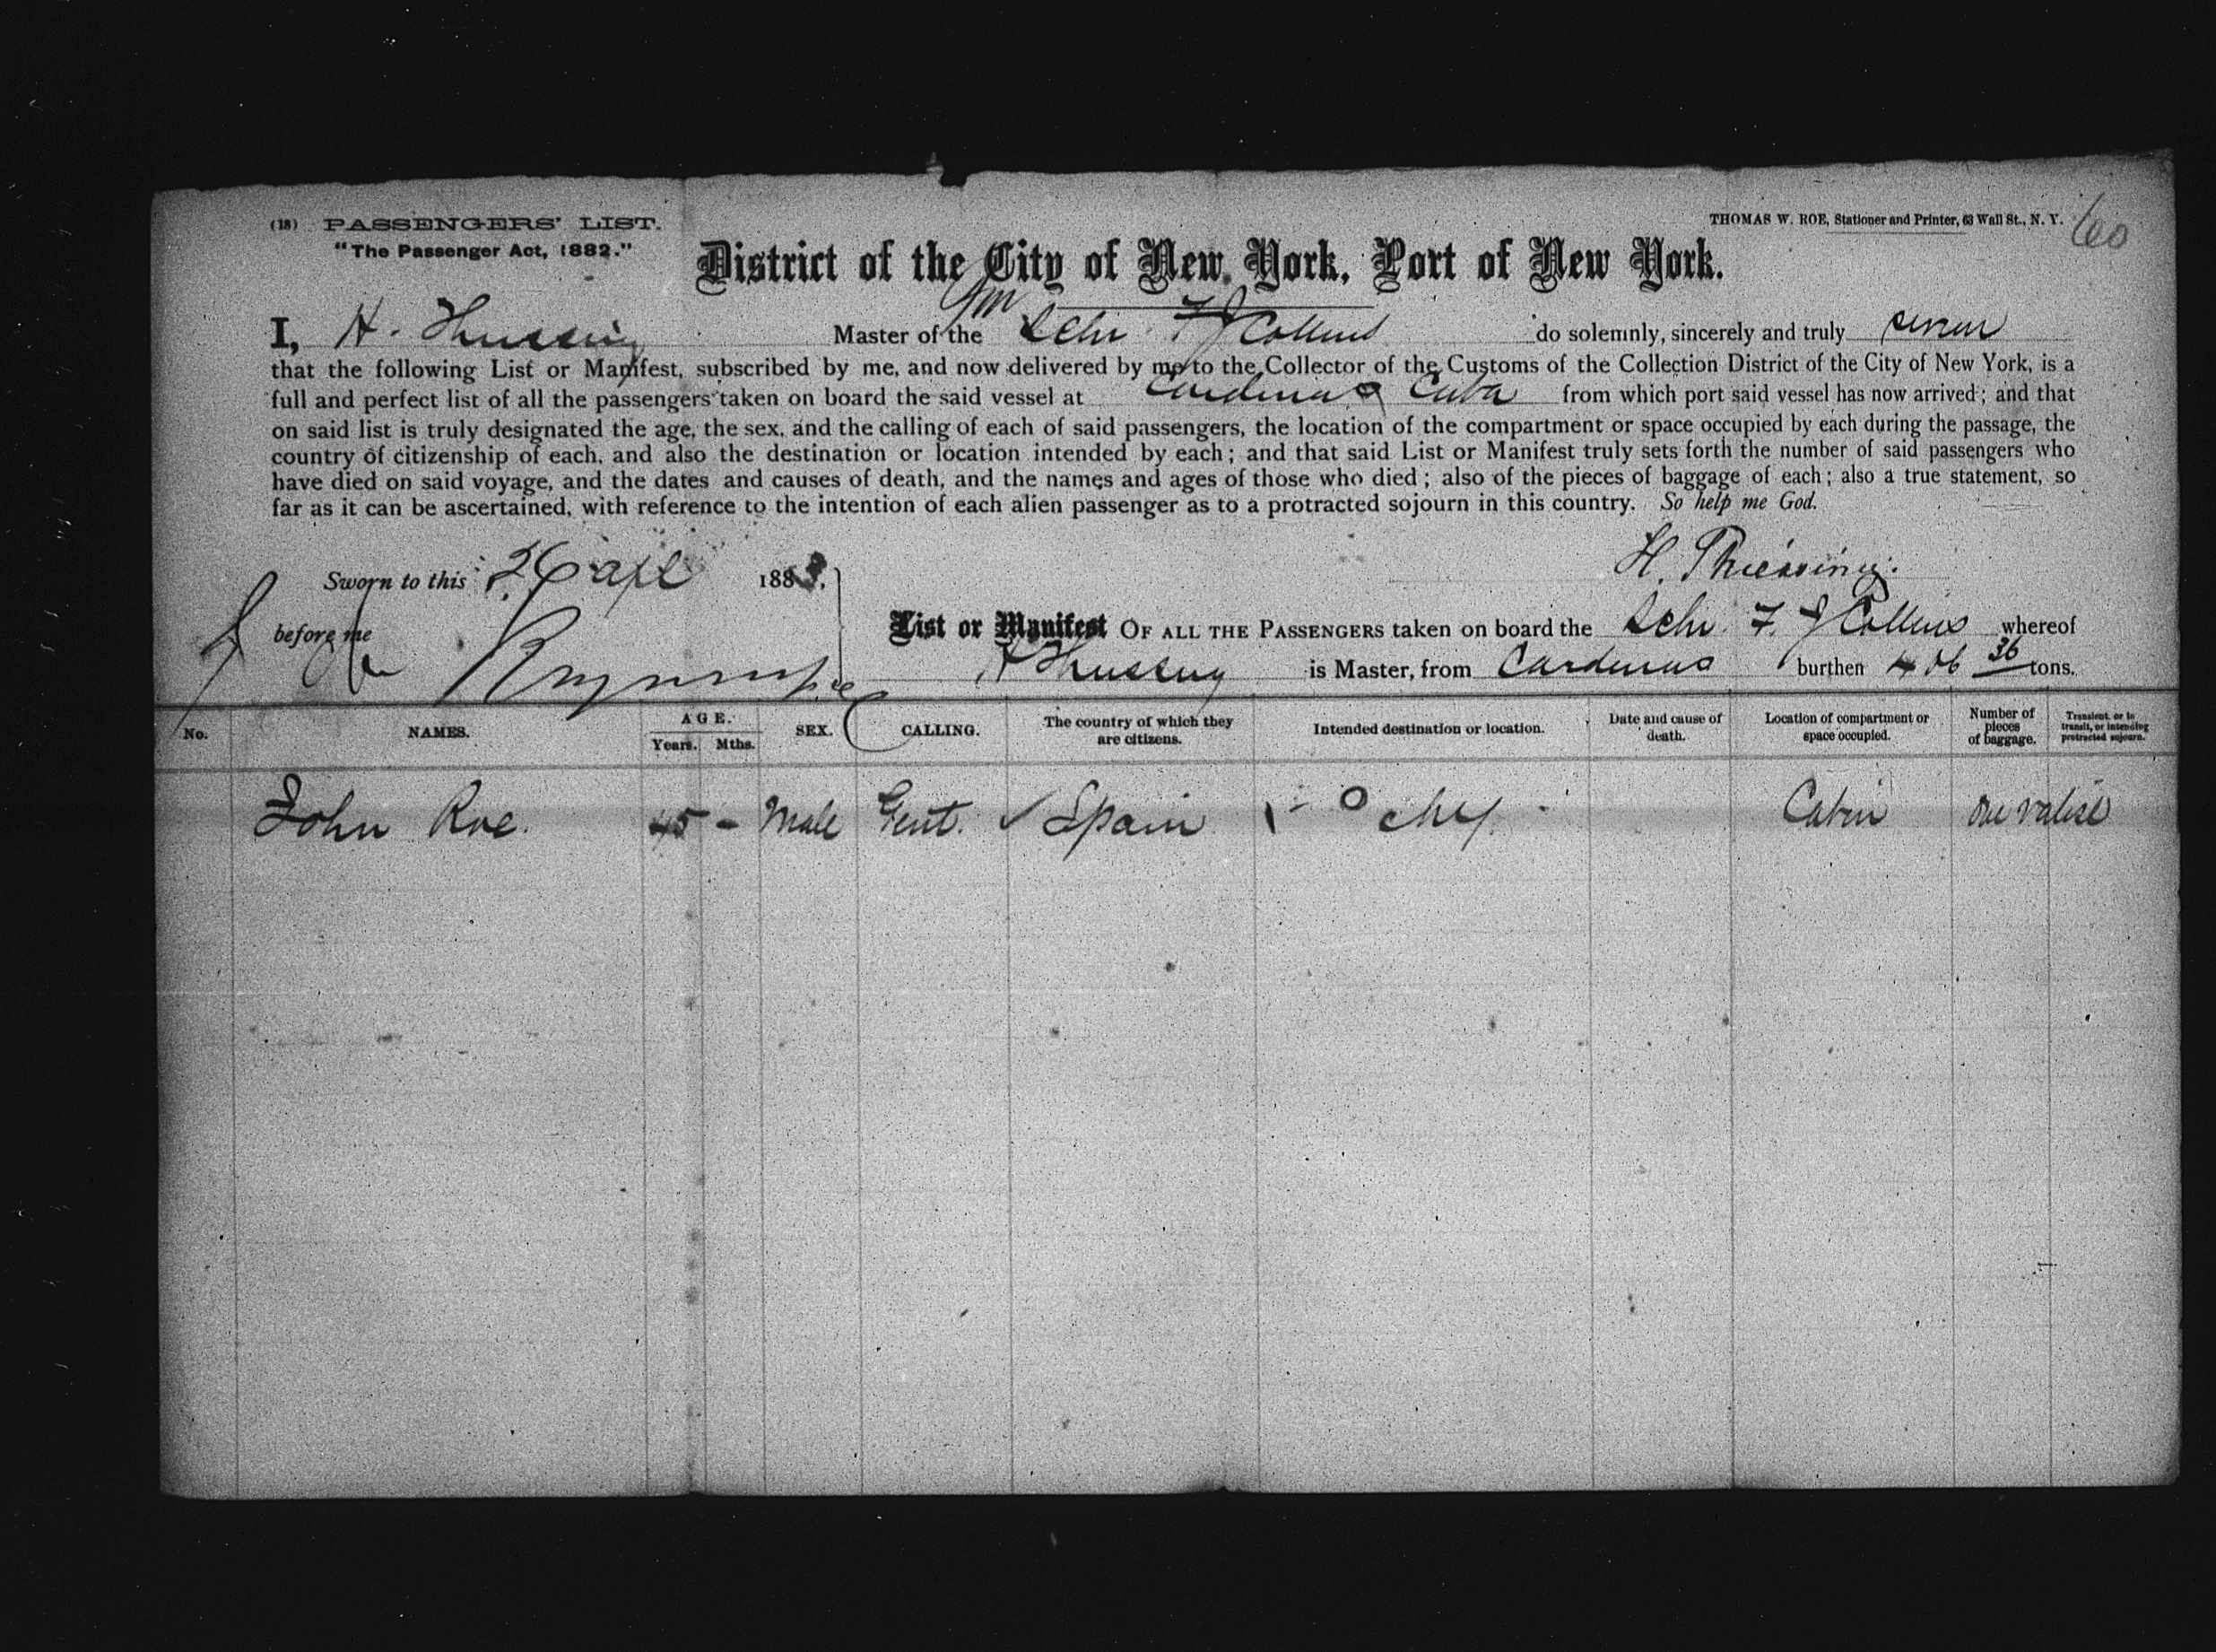 (18) PASSENGERS' LIST.
THOMAS W. ROE, Stationer and Printer, 63 Wall St., N. Y.
60
"The Passenger Act, 1882."
District of the City of New York, Port of New York.
I, H. Master of the Am Schr F J Collins do solemnly, sincerely and truly swear
that the following List or Manifest, subscribed by me, and now delivered by me to the Collector of the Customs of the Collection District of the City of New York, is a
full and perfect list of all the passengers taken on board the said vessel at Cardenas Cuba from which port said vessel has now arrived; and that
on said list is truly designated the age, the sex, and the calling of each of said passengers, the location of the compartment or space occupied by each during the passage, the
country of citizenship of each, and also the destination or location intended by each; and that said List or Manifest truly sets forth the number of said passengers who
have died on said voyage, and the dates and causes of death, and the names and ages of those who died; also of the pieces of baggage of each; also a true statement, so
far as it can be ascertained, with reference to the intention of each alien passenger as to a protracted sojourn in this country. So help me God.
H.
Sworn to this 26 Apl 1883.
before me
List or Manifest OF ALL THE PASSENGERS taken on board the Schr F. J Collins whereof
H is Master, from Cardenas burthen 406 36 tons.
No. NAMES. AGE. Years. Mths. SEX. CALLING. The country of which they are citizens. Intended destination or location. Date and cause of death. Location of compartment or space occupied. Number of pieces of baggage. Transient, or in transit, or intending protracted sojourn.
John Roe. 45 - Male Gent. Spain Cabin One valise